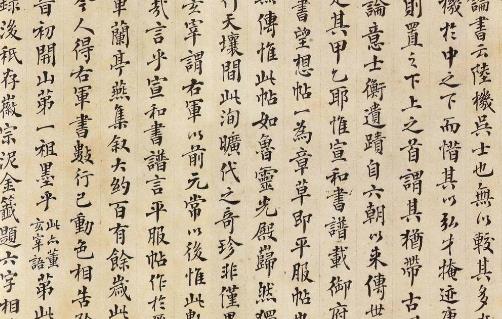 論書云陸機吳士也無以較其多
機於中之下而惜其以弘才掩迹
則置之下上之首謂其猶帶古
論意士衡遺蹟自六朝以來傳世
其甲乙耶惟宣和書譜載御府
書望想帖一為章草即平服帖也
無傳惟此帖如魯靈光殿巋然獨
行天壤間此洵曠代之奇珍非僅
玄宰謂右軍以前元常以後惟此
哉言乎宣和書譜言平服帖作於
軍蘭亭燕集敘大約百有餘歲此
今人得右軍書數行已動色相告
昔初開山第一祖墨乎 此亦董玄宰語 第此
錄後祇存徽宗泥金籤題六字相